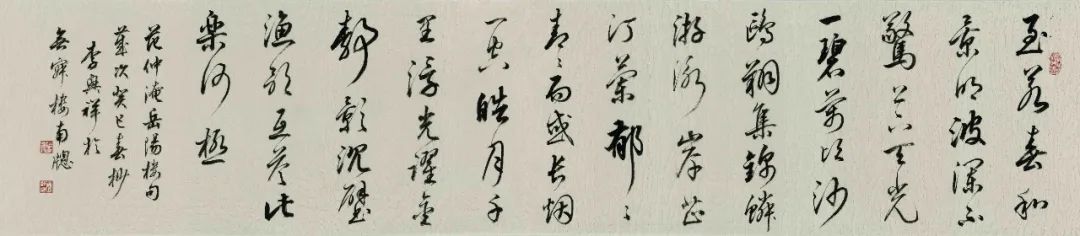 至若春和
景明波澜不
驚上下天光
一碧萬頃沙
鷗翔集錦鱗
游泳岸芷
汀蘭郁〻
青〻而或長烟
一空皓月千
里浮光躍金
靜影沉璧
漁歌互答此
樂何極
范仲淹岳陽樓句
歲次癸巳春杪
李興祥於
樓南窗